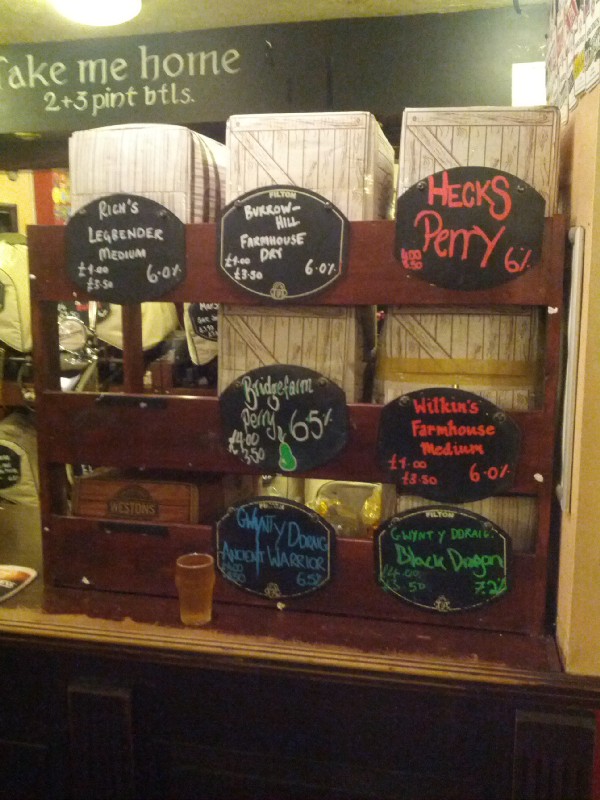 Take me home
2+3 pint btls.
RICH'S
LEGBENDER
MEDIUM
£4.00
£3.50
6.0%
PILTON
BURROW-
HILL
FARMHOUSE
DRY
£4.00
£3.50
6.0%
HECKS
Perry
4.00
3.50
6%
Bridgefarm
Perry
£4.00
3.50
6.5%
Wilkin's
Farmhouse
Medium
£4.00
£3.50
6.0%
WESTONS
GWYNT Y DDRAIG
ANCIENT WARRIOR
6.5%
PILTON
GWYNT Y DDRAIG
Black Dragon
£4.00
3.50
7.2%